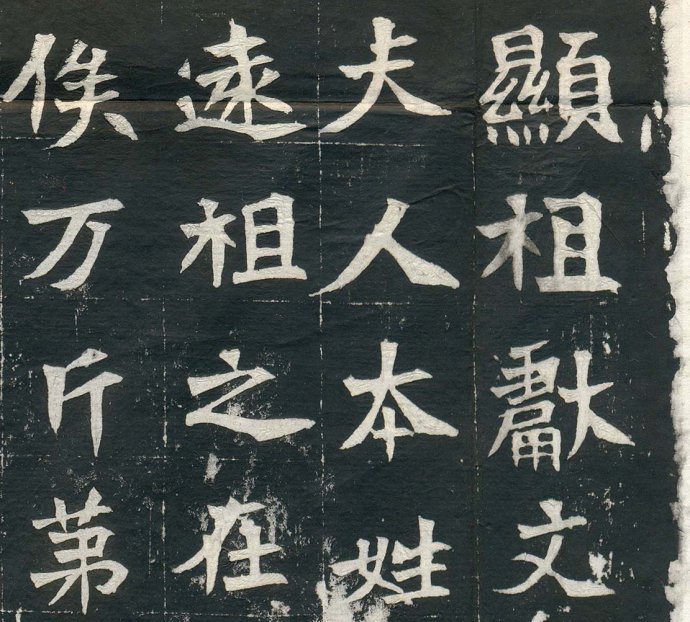 顯祖獻文
夫人本姓
遠祖之在
俟万斤第